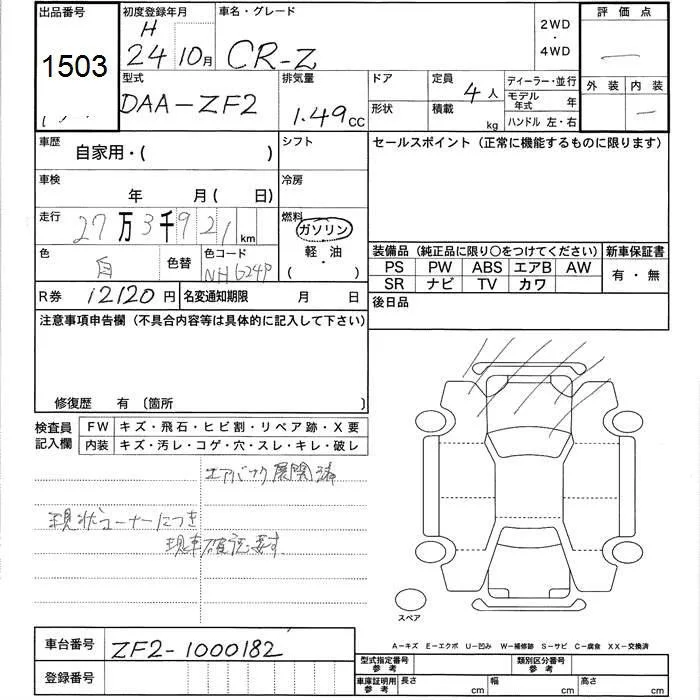 出品番号 初度登録年月 車名・グレード 2WD・4WD 評価点
1503 H 24 10月 CR-Z —
型式 排気量 ドア 定員 4人 ディーラー・並行 外装 内装
DAA-ZF2 1.49cc 形状 積載 kg モデル年式 年 —
ハンドル 左・右
車歴 自家用・( ) シフト セールスポイント(正常に機能するものに限ります)
車検 年 月( 日) 冷房
走行 27万3千921km 燃料 ガソリン
軽・油
( ・ )
色 白 色替 色コード NH624P
装備品(純正品に限り○をつけてください) 新車保証書
PS PW ABS エアB AW 有・無
SR ナビ TV カワ
R券 12120円 名変通知期限 月 日 後日品
注意事項申告欄(不具合内容等は具体的に記入して下さい)
修復歴 有 〔箇所 〕
検査員記入欄 FW キズ・飛石・ヒビ割・リペア跡・X要
内装 キズ・汚レ・コゲ・穴・スレ・キレ・破レ
エアバック展開済
現状コーナーにつき
現車確認要す
スペア
車台番号 ZF2-1000182
登録番号
A-キズ E-エクボ U-凹み W-補修跡 S-サビ C-腐食 XX-交換済
型式指定番号 参考 類別区分番号 参考
車庫証明用 参考 長さ cm 幅 cm 高さ cm